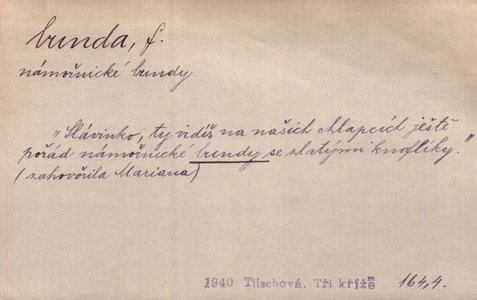 bunda, f.
námořnické bundy
"Slávinko, ty vidíš na našich chlapcích ještě
pořád námořnické bundy se zlatými knoflíky."
(zahovořila Mariana)
1940 Tilschová. Tři kříže 164,4.